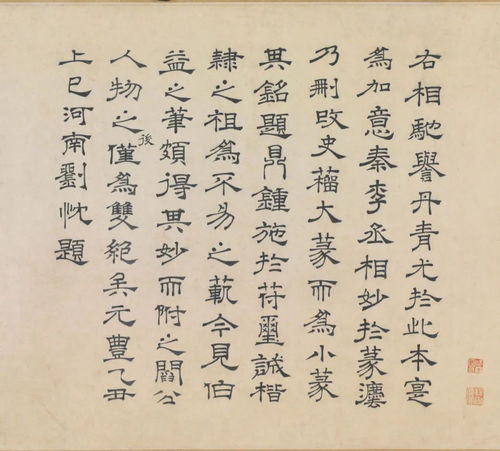 右相馳譽丹青尤於此本寔
爲加意秦李丞相妙於篆灋
乃刪改史籀大篆而爲小篆
其銘題鼎鍾施於苻璽誠楷
隸之祖爲不易之範今見伯
益之筆頗得其妙而附之閻公
人物之後僅爲雙絕矣元豊乙丑
上巳河南劉忱題